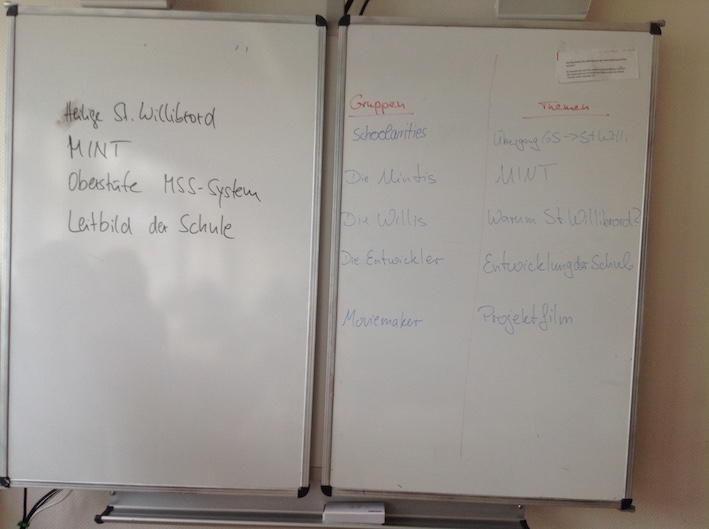 Heilige St. Willibrord
MINT
Oberstufe MSS-System
Leitbild der Schule
Gruppen Themen
Schoolarities Übergang GS → St Willi
Die Mintis MINT
Die Willis Warum St. Willibrord?
Die Entwickler Entwicklung der Schule
Moviemaker Projektfilm